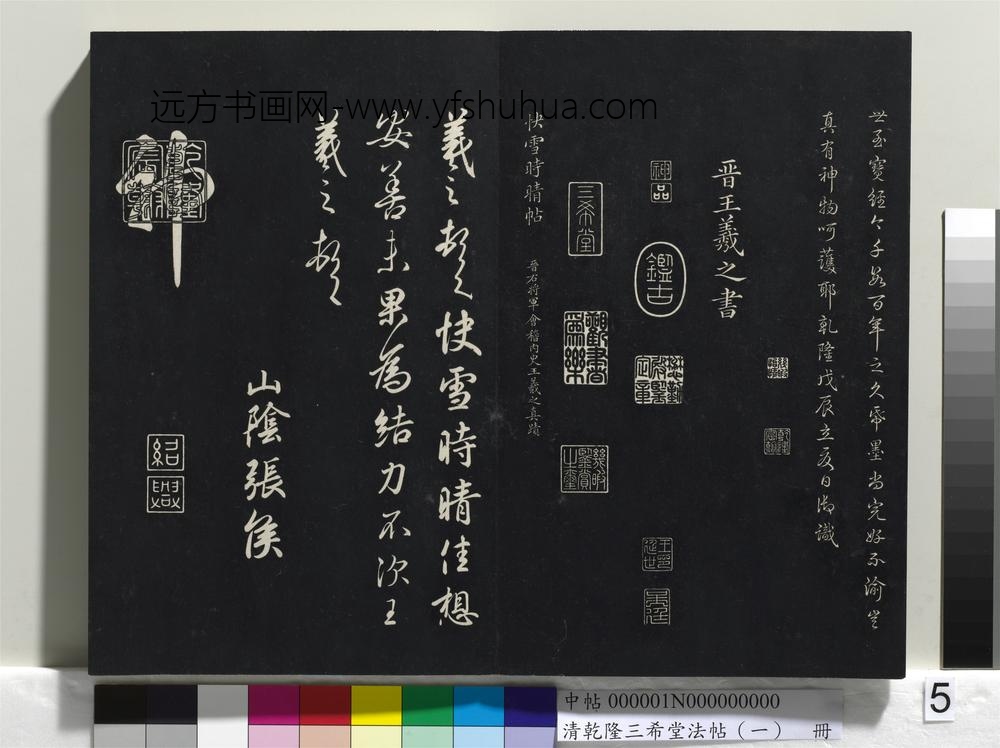 远方书画网-www.yfshuhua.com
世至寶經今千數百年之久帋墨尚完好不渝豈
真有神物呵護耶乾隆戊辰立夏日御識
晉王羲之書
神品
鑑古
三希堂
快雪時晴帖
晉右將軍會稽內史王羲之真蹟
羲之頓首快雪時晴佳想
安善未果為結力不次王
羲之頓首
山陰張侯
紹興
中帖 000001N000000000
清乾隆三希堂法帖(一) 冊
5